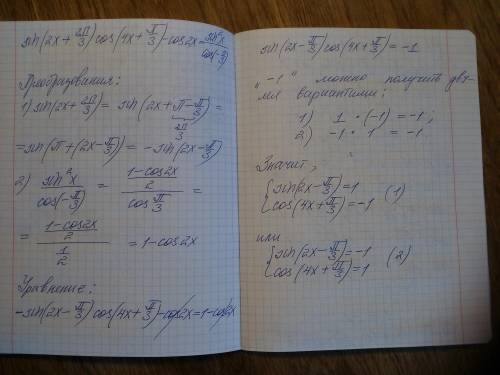 sin(2x + 2π/3) cos(4x + π/3) - cos2x = sin²x/cos(-π/3)
Преобразования:
1) sin(2x + 2π/3) = sin(2x + π - π/3) =
2π/3
= sin(π + (2x - π/3)) = - sin(2x - π/3)
2) sin²x/cos(-π/3) = (1-cos2x)/2/cos π/3 =
= (1-cos2x)/2/1/2 = 1 - cos2x
Уравнение:
- sin(2x - π/3) cos(4x + π/3) - cos2x = 1 - cos2x
sin(2x - π/3) cos(4x + π/3) = -1
„-1" можно получить двумя
вариантами:
1) 1 · (-1) = -1 ;
2) -1 · 1 = -1
Значит,
{ sin(2x - π/3) = 1
{ cos(4x + π/3) = -1 (1)
или
{ sin(2x - π/3) = -1
{ cos(4x + π/3) = 1 (2)